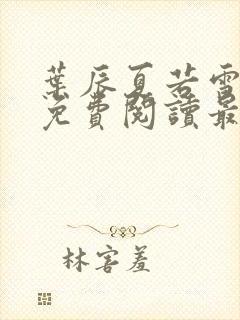 葉辰夏若雪
免費閱讀最
林害羞